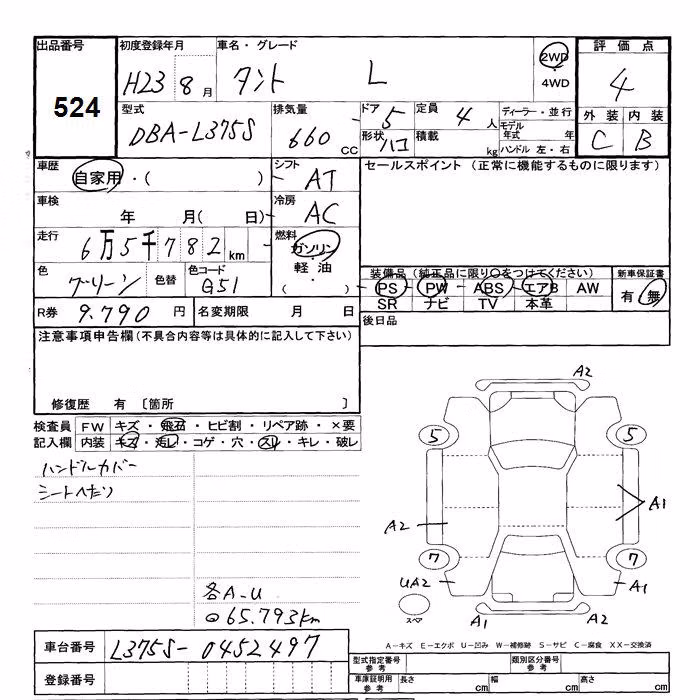 出品番号 初度登録年月 車名・グレード 2WD 評価点
524 H23 8月 タント L 4WD 4
型式 排気量 ドア 定員 ディーラー・並行 外装 内装
DBA-L375S 660cc 5 4人 モデル年式 年 C B
形状 ハコ 積載 kg ハンドル 左・右
車歴 自家用・( ) シフト AT セールスポイント (正常に機能するものに限ります)
車検 年 月( 日) 冷房 AC
走行 6万5千782km 燃料 ガソリン
軽油
・
( )
色 グリーン 色替 色コード G51 装備品 (純正品に限り○をつけてください) 新車保証書
PS PW ABS エアB AW 有 無
SR ナビ TV 本革
R券 9,790円 名変期限 月 日 後日品
注意事項申告欄(不具合内容等は具体的に記入して下さい)
修復歴 有 〔箇所 〕
検査員 FW キズ・飛石・ヒビ割・リペア跡・×要
記入欄 内装 キズ・汚レ・コゲ・穴・スレ・キレ・破レ
ハンドルカバー
シートへたり
各A-U
65,793km
A2
5 5
A2 A1
7 7
UA2 A1
スペア
A1 A2
A-キズ E-エクボ U-凹み W-補修跡 S-サビ C-腐食 XX-交換済
車台番号 L375S-0452497
登録番号
型式指定番号 参考 類別区分番号 参考
車庫証明用 参考 長さ cm 幅 cm 高さ cm